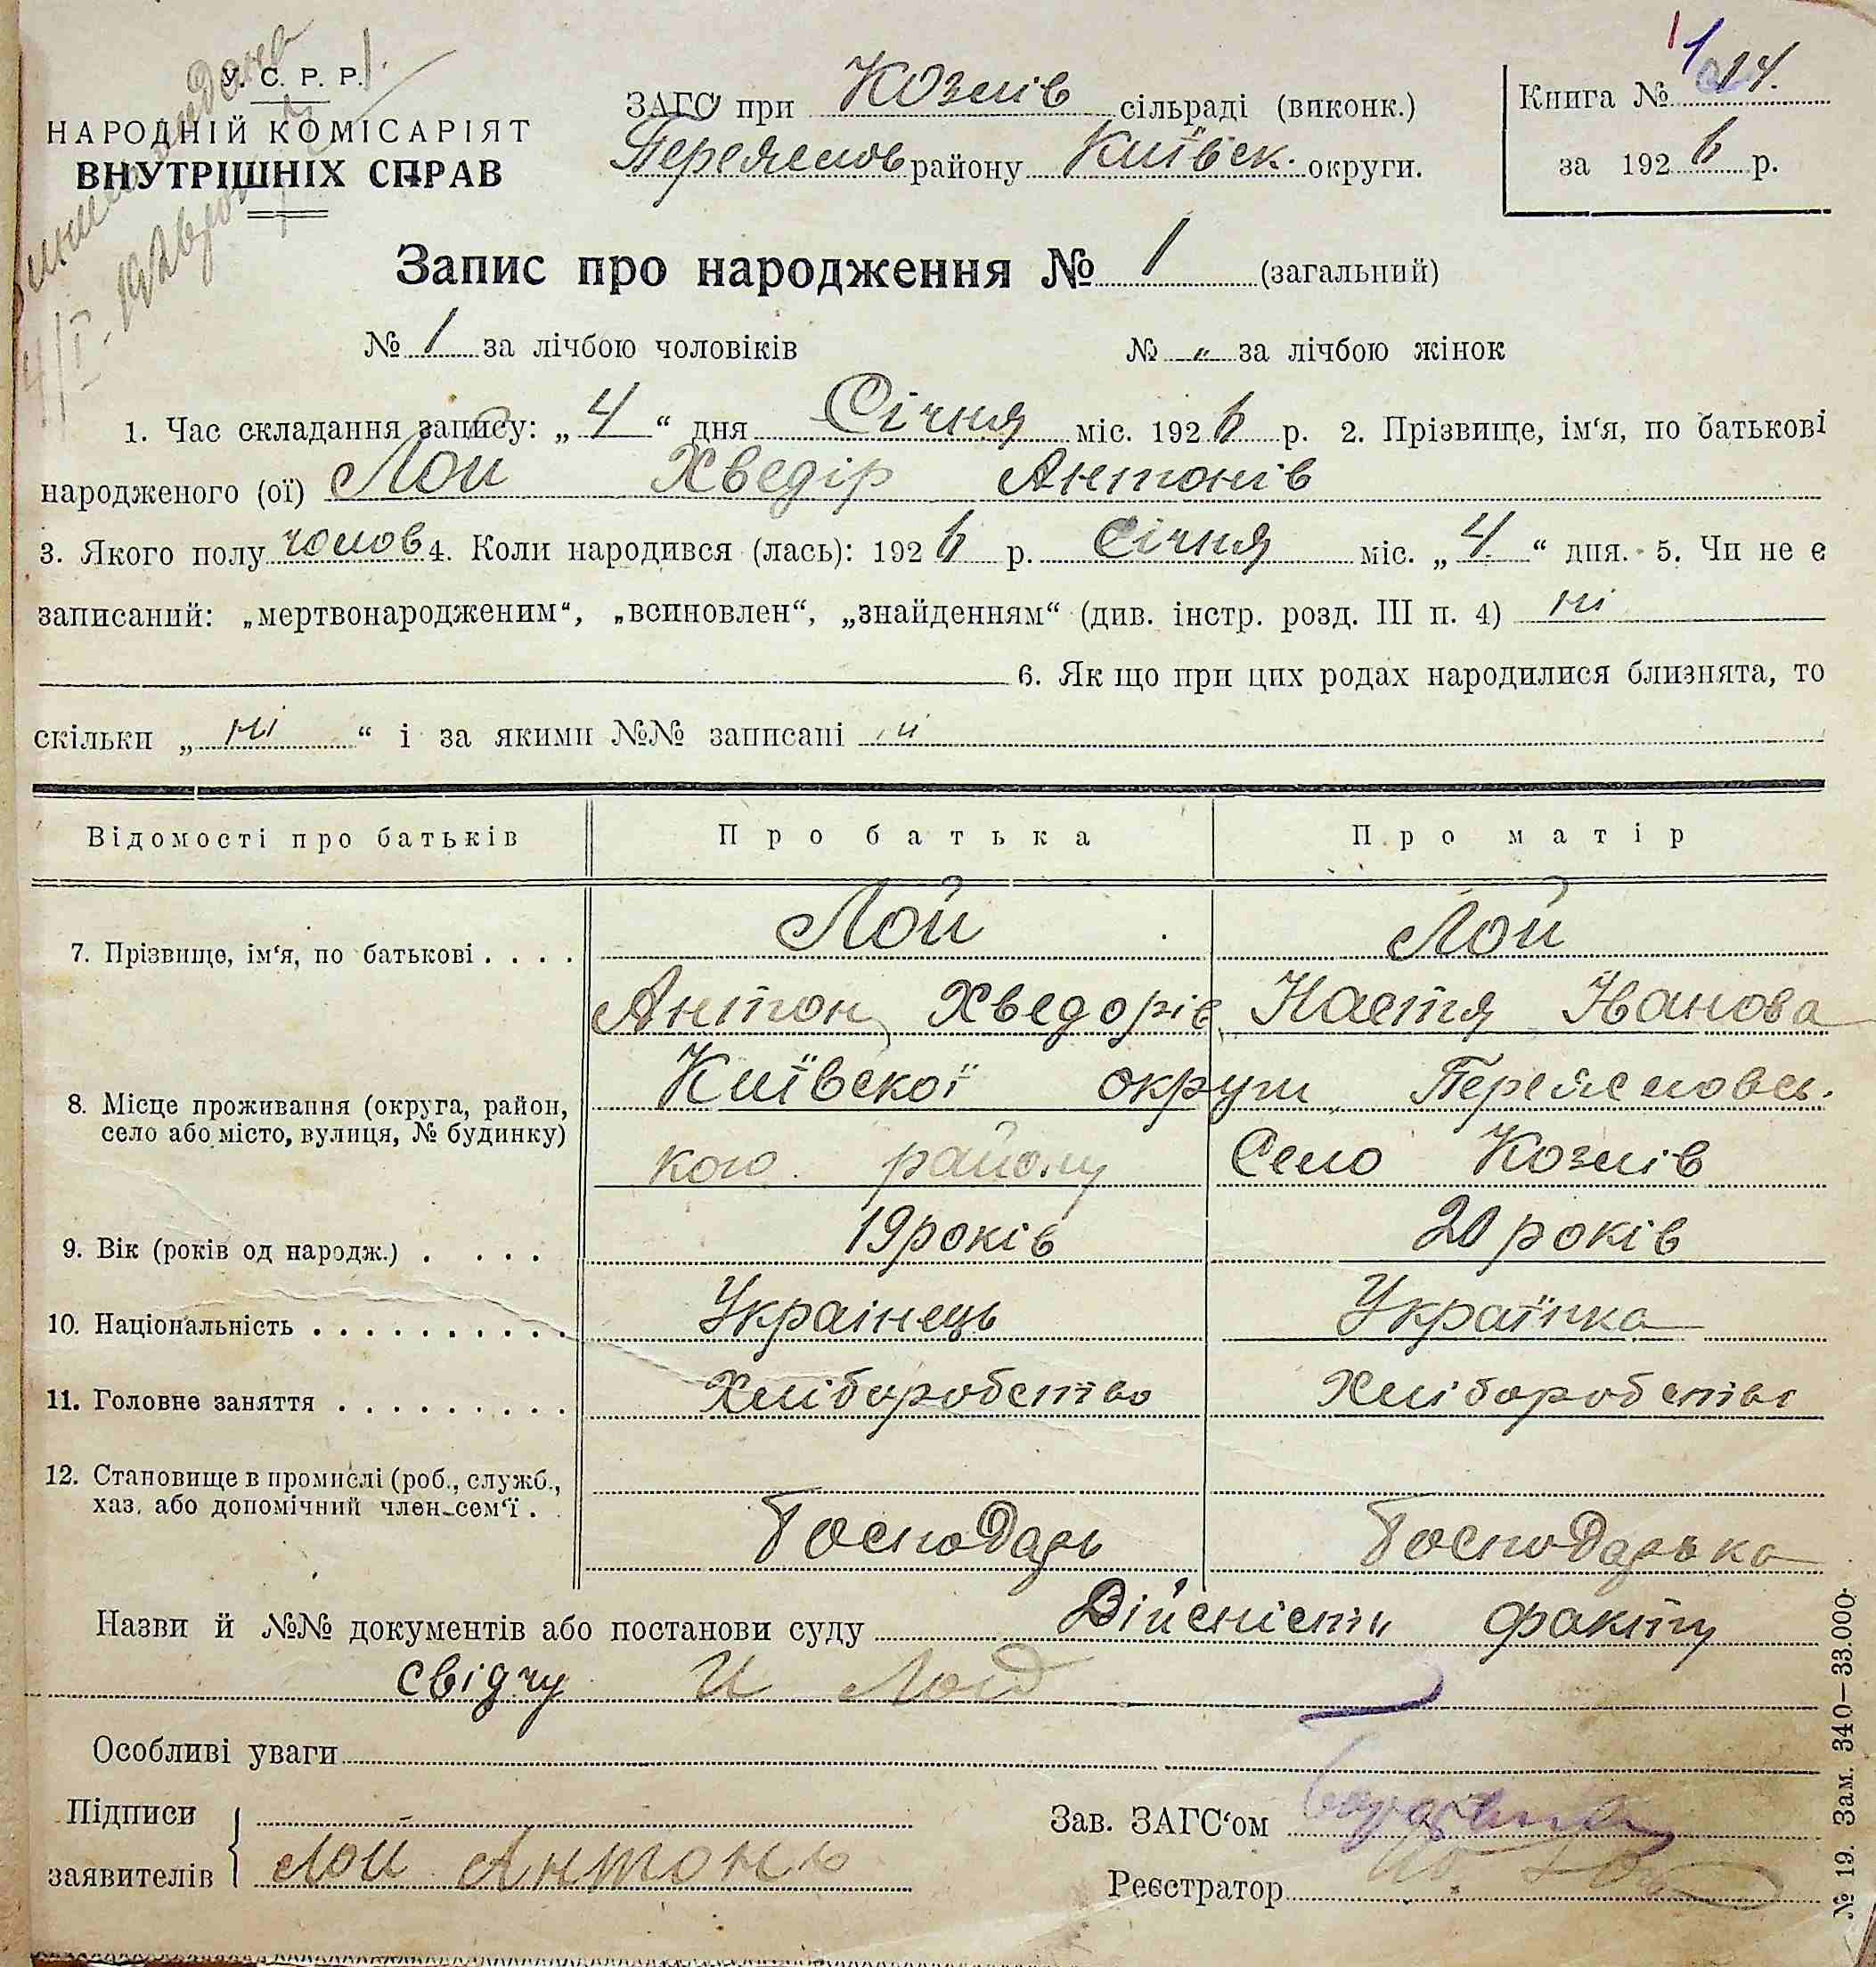 У. С. Р. Р.
НАРОДНІЙ КОМІСАРІЯТ
ВНУТРІШНІХ СПРАВ
ЗАГС при Козлів сільраді (виконк.)
Переяслов району Київськ. округи.
Книга № 14.
за 1926 р.
Запис про народження № 1 (загальний)
№ 1 за лічбою чоловіків № „ за лічбою жінок
1. Час складання запису: „4“ дня Січня міс. 1926 р. 2. Прізвище, ім‘я, по батькові
народженого (ої) Лой Хведір Антонів
3. Якого полу чолов 4. Коли народився (лась): 1926 р. Січня міс. „4“ дня. 5. Чи не є
записаний: „мертвонародженим“, „всиновлен“, „знайденням“ (див. інстр. розд. III п. 4) ні
6. Як що при цих родах народилися близнята, то
скільки „ні“ і за якими №№ записані „
Відомості про батьків Про батька Про матір
Лой Лой
7. Прізвище, ім‘я, по батькові . . . .
Антон Хведорів Настя Іванова
Київскої округи Переясловсь.
8. Місце проживання (округа, район,
село або місто, вулиця, № будинку)
кого району Село Козлів
9. Вік (років од народж.) . . . . 19 років 20 років
10. Національність . . . . . . . . . . Украінець Українка
11. Головне заняття . . . . . . . . . Хліборобство Хліборобство
12. Становище в промислі (роб., служб.,
хаз. або допомічний член сем‘ї .
Господарь Господарька
Назви й №№ документів або постанови суду Дійсність факту
свідчу И Лой
Особливі уваги
Підписи
заявителів Лой Антонь
Зав. ЗАГС‘ом
Реєстратор
№ 19. Зам. 340—33.000